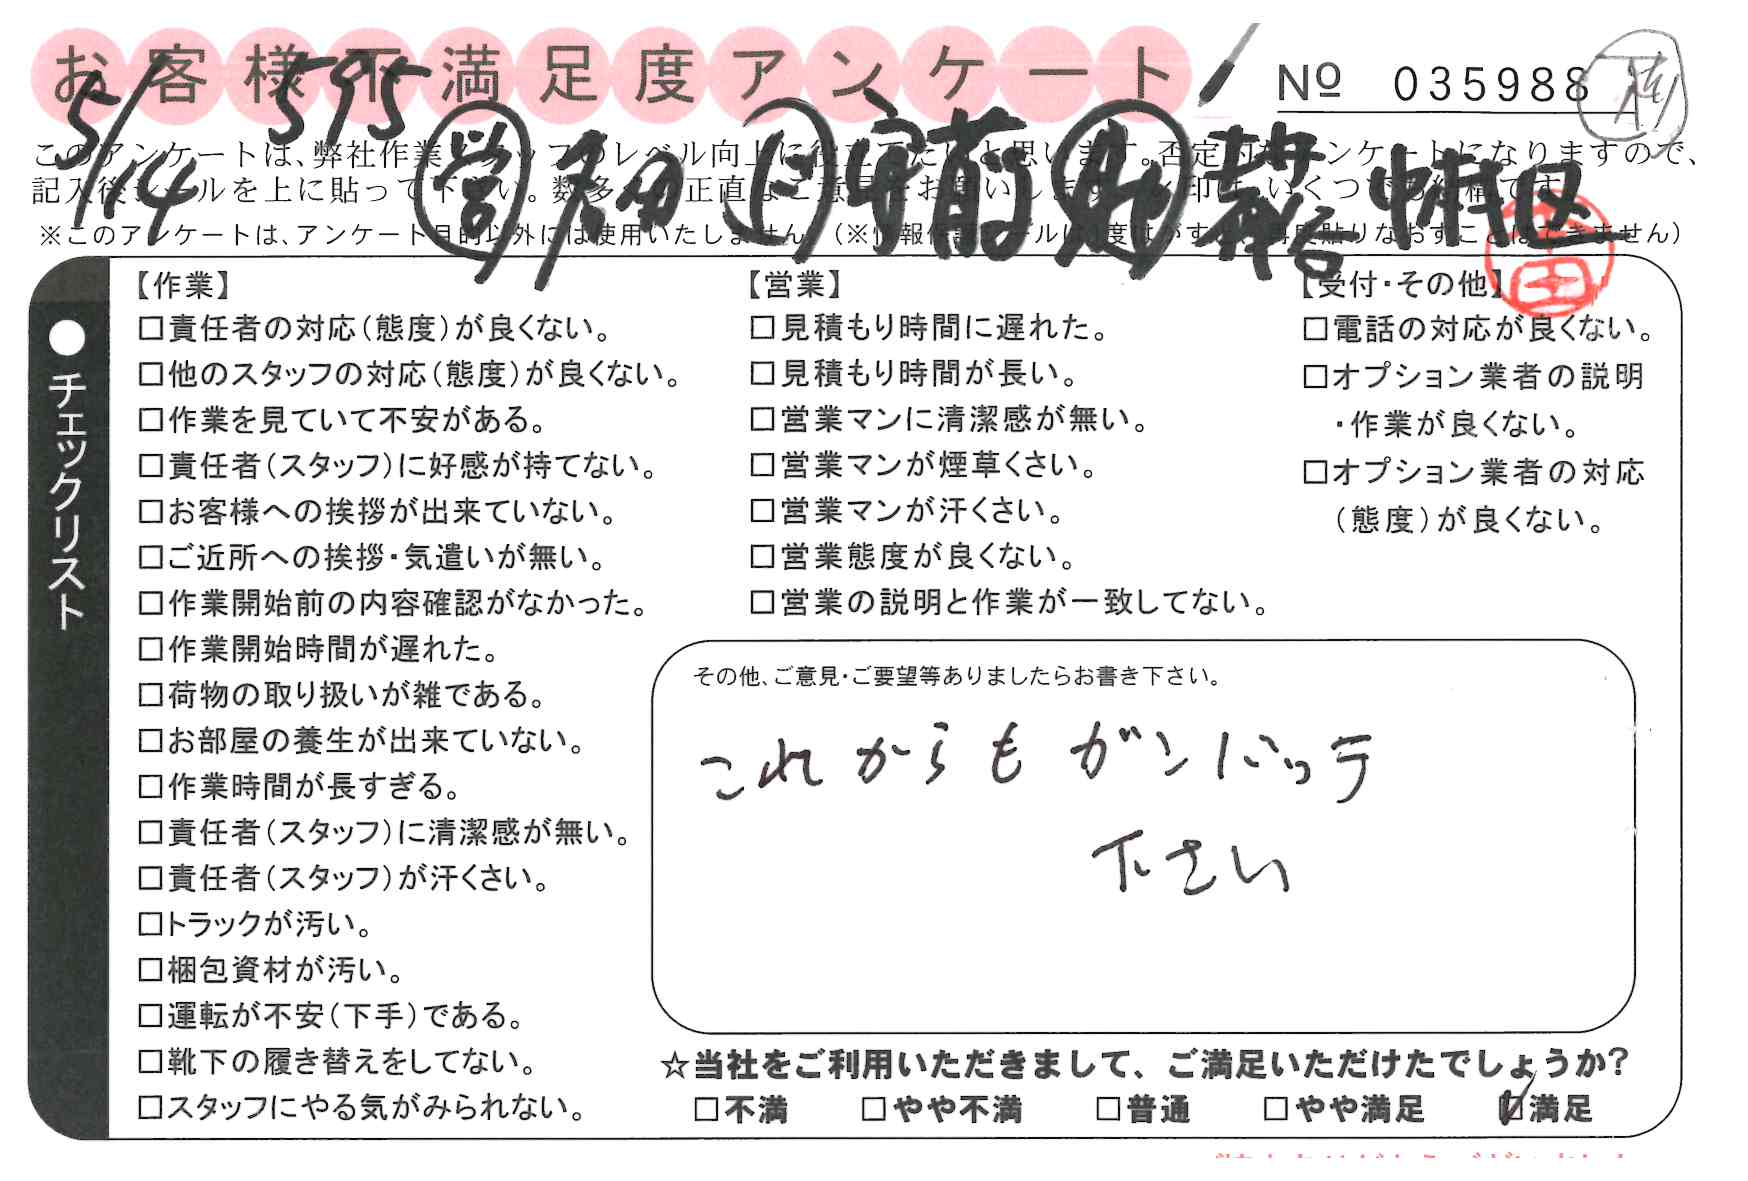 お客様不満足度アンケート
№ 035988
5/14 595
このアンケートは、弊社作業スタッフのレベル向上に役立てたいと思います。否定的なアンケートになりますので、
記入後シールを上に貼って下さい。数多くの正直なご意見をお願いします。
※このアンケートは、アンケート目的以外には使用いたしません。
●チェックリスト
【作業】
□責任者の対応(態度)が良くない。
□他のスタッフの対応(態度)が良くない。
□作業を見ていて不安がある。
□責任者(スタッフ)に好感が持てない。
□お客様への挨拶が出来ていない。
□ご近所への挨拶・気遣いが無い。
□作業開始前の内容確認がなかった。
□作業開始時間が遅れた。
□荷物の取り扱いが雑である。
□お部屋の養生が出来ていない。
□作業時間が長すぎる。
□責任者(スタッフ)に清潔感が無い。
□責任者(スタッフ)が汗くさい。
□トラックが汚い。
□梱包資材が汚い。
□運転が不安(下手)である。
□靴下の履き替えをしてない。
□スタッフにやる気がみられない。
【営業】
□見積もり時間に遅れた。
□見積もり時間が長い。
□営業マンに清潔感が無い。
□営業マンが煙草くさい。
□営業マンが汗くさい。
□営業態度が良くない。
□営業の説明と作業が一致してない。
【受付・その他】
□電話の対応が良くない。
□オプション業者の説明
・作業が良くない。
□オプション業者の対応
(態度)が良くない。
その他、ご意見・ご要望等ありましたらお書き下さい。
これからもガンバッテ
下さい
☆当社をご利用いただきまして、ご満足いただけたでしょうか?
□不満 □やや不満 □普通 □やや満足 ☑満足